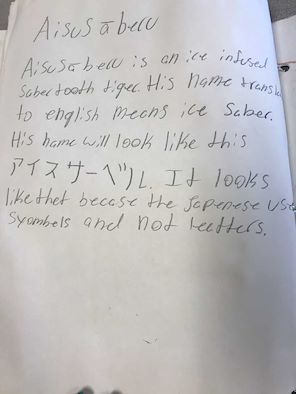 Aisusāberu
Aisusāberu is an ice infused
Sabertooth tiger. His name transla
to english means ice Saber.
His name will look like this
アイスサーベル. It looks
like thet becase the Japenese use
Syombels and not leetters.